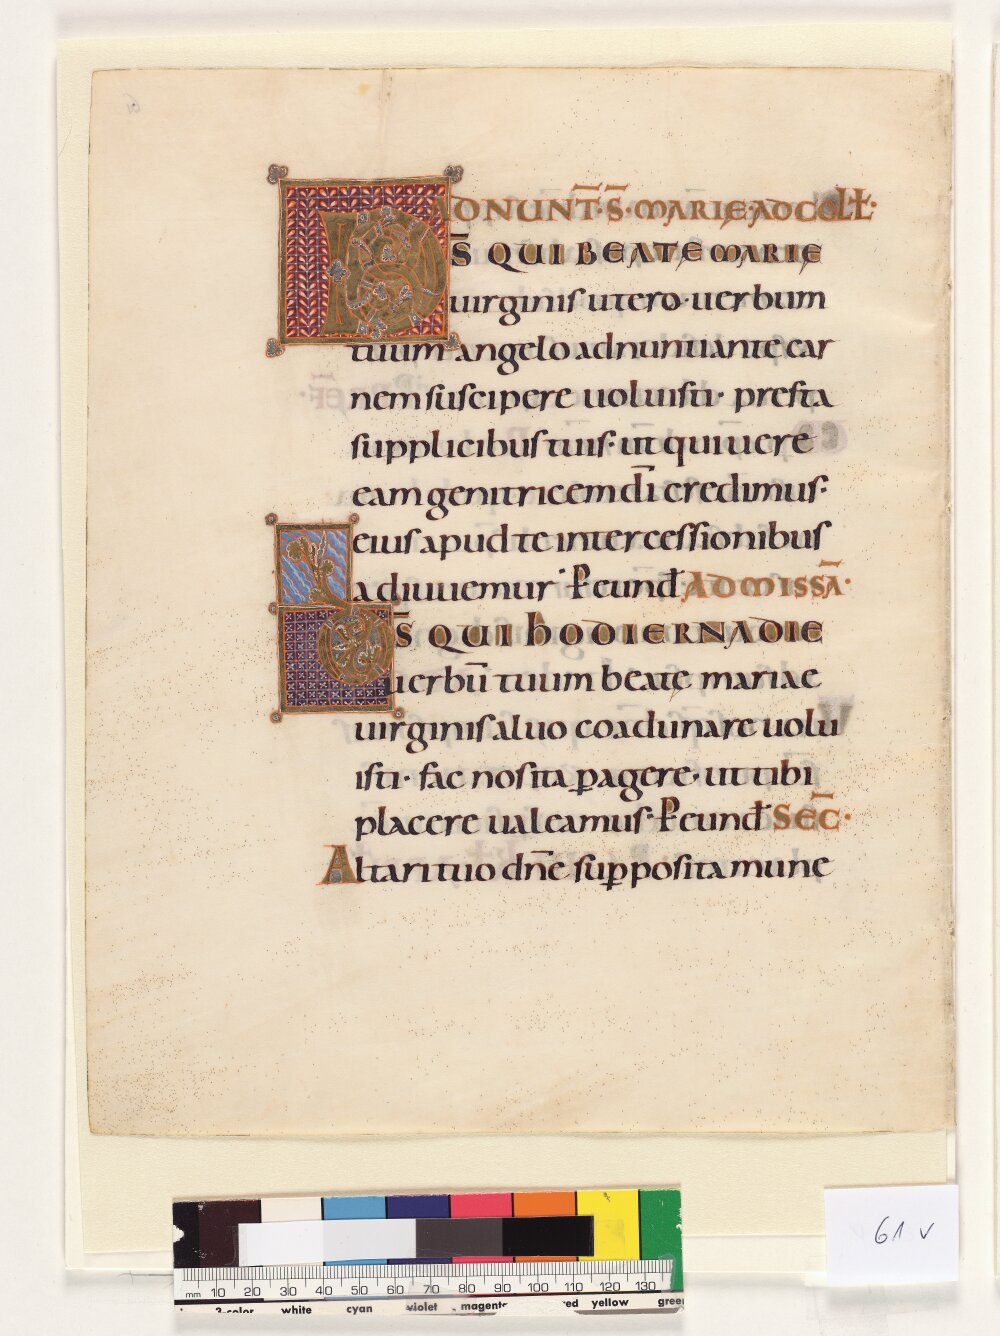 ADNUNT̄·S̄·MARIE·AD COLL̄·
DS̄ QUI BEATE MARIE
uirginis utero uerbum
tuum angelo adnuntiante car
nem suscipere uoluisti· presta
supplicibus tuis· ut qui uere
eam genitricem dī credimus·
eius apud te intercessionibus
adiuuemur· P eund AD MISSĀ·
DS̄ QUI HODIERNA DIE
uerbū tuum beatę mariae
uirginis aluo coadunare uolu
isti· fac nos ita ꝑagere· ut tibi
placere ualeamus· P eund SEC̄·
Altari tuo dn̄e supposita mune
61 v
mm 10 20 30 40 50 60 70 80 90 100 110 120 130
3-color white cyan violet magenta red yellow green